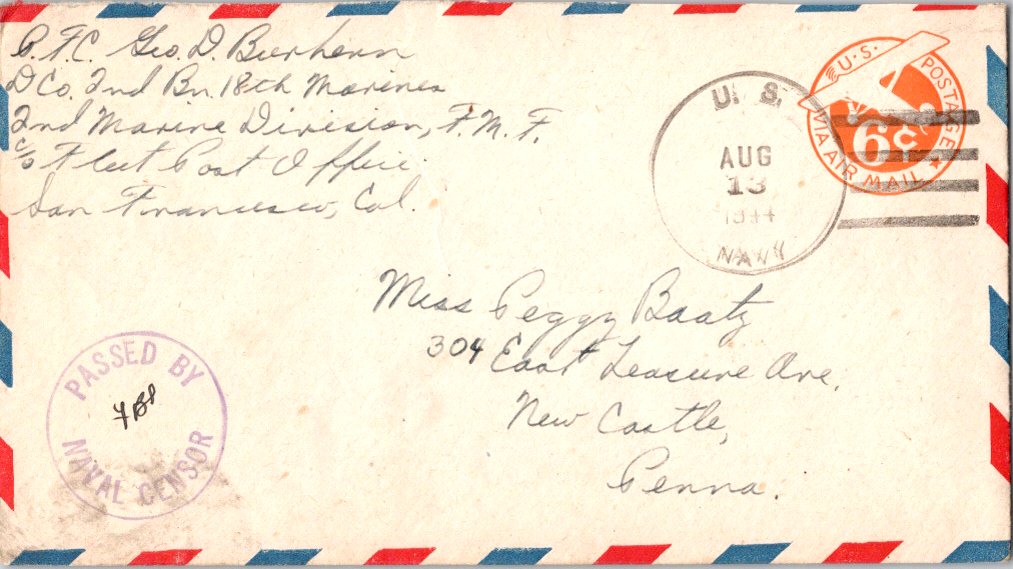 P.F.C. Geo. D.
D Co. 2nd Bn. 18th Marines
2nd Marine Division, F.M.F.
c/o Fleet Post Office
San Francisco, Cal.
U. S.
AUG
13
1944
NAVY
U.S. POSTAGE
6c
VIA AIR MAIL
Miss Peggy Baatz
304 East Leasure Ave.
New Castle,
Penna.
PASSED BY
NAVAL CENSOR